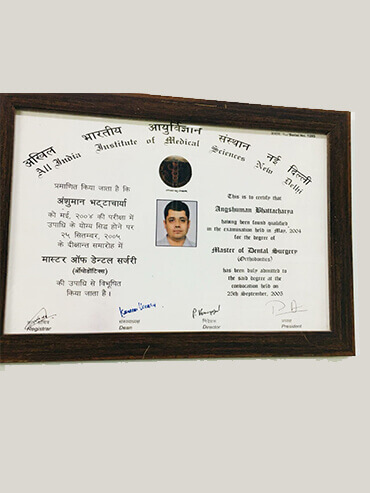 अखिल भारतीय आयुर्विज्ञान संस्थान नई दिल्ली
All India Institute of Medical Sciences New Delhi
प्रमाणित किया जाता है कि
अंशुमान भट्टाचार्या
को मई, २००४ की परीक्षा में
उपाधि के योग्य सिद्ध होने पर
२५ सितम्बर, २००५
के दीक्षान्त समारोह में
मास्टर ऑफ डेन्टल सर्जरी
की उपाधि से विभूषित
किया जाता है।
This is to certify that
Angshuman Bhattacharya
having been found qualified
in the examination held in May, 2004
for the degree of
Master of Dental Surgery
(Orthodontics)
has been duly admitted to
the said degree at the
convocation held on
25th September, 2005
Registrar
Dean
Director
President